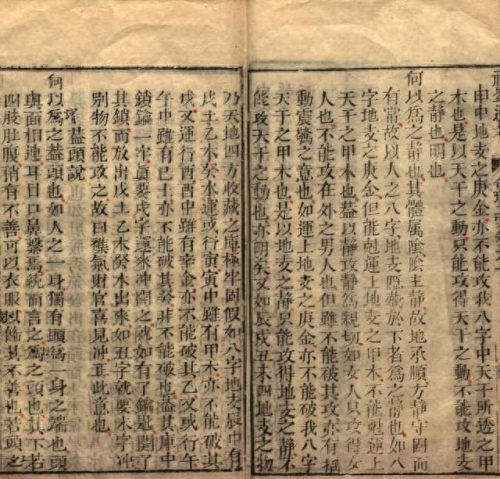 申中之庚金亦不能攻我八字中天干所透之甲
木也是以天干之動只能攻得天干之動不能攻地支
之靜也明也
何以爲之靜也其體属陰陰主靜故地承順方靜守固而
有常故以人之八字地支既藏於下者爲之靜也如八
字地支之庚金但能尅運上地支之甲木不能尅運上
天干之甲木也葢以靜攻靜爲親切如女人只攻得女
人也不能攻在外之男人也但雖不能攻其攻亦有揺
動震驚之意也如運上地支之庚金亦不能破我八字
天干之甲木也是以地支之靜只能攻得地支之靜不
能攻天干之動也亦明矣又如辰戌丑未四地支之物
乃天地四方收藏之庫極牢固假如八字地支辰中有
戊土乙木癸水運或行寅寅中雖有甲木亦不能破其
戊又運行酉酉中雖有辛金亦不能破其乙又或行午
午中雖有巳土亦不能破其癸非不能破也葢其庫中
鎖鑰一定真要戌字運來沖開之就如有了鑰匙開了
其鎖而放出戊土乙木癸水出來如丑字就要未字冲
別物不能攻之故曰雜氣財官喜見沖正此意也
增 葢頭說
何以爲之葢頭也如人之一身獨有頭爲一身之端也頭
與面相連耳目口鼻繫焉統而言之爲之頭也其下若
四肢肚腹稍有不善可以衣服以餙其不善也若頭之